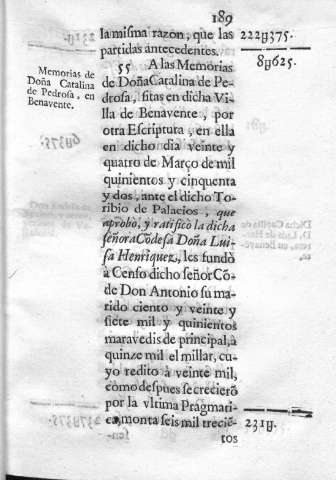 189
la misma razon, que las
partidas antecedentes.
222ȣ375.
8ȣ625.
Memorias de
Doña Catalina
de Pedrosa, en
Benavente.
55 A las Memorias
de Doña Catalina de Pe-
drosa, sitas en dicha Vi-
lla de Benavente, por
otra Escriptura, en ella
en dicho dia veinte y
quatro de Março de mil
quinientos y cinquenta
y dos, ante el dicho To-
ribio de Palacios, que
aprobò, y ratificò la dicha
señora Cõdesa Doña Lui-
sa Henriquez, les fundò
à Censo dicho señor Cõ-
de Don Antonio su ma-
rido ciento y veinte y
siete mil y quinientos
maravedis de principal, à
quinze mil el millar, cu-
yo redito à veinte mil,
como despues se crecierõ
por la vltima Pragmati-
ca, monta seis mil treciẽ-
tos
231ȣ.